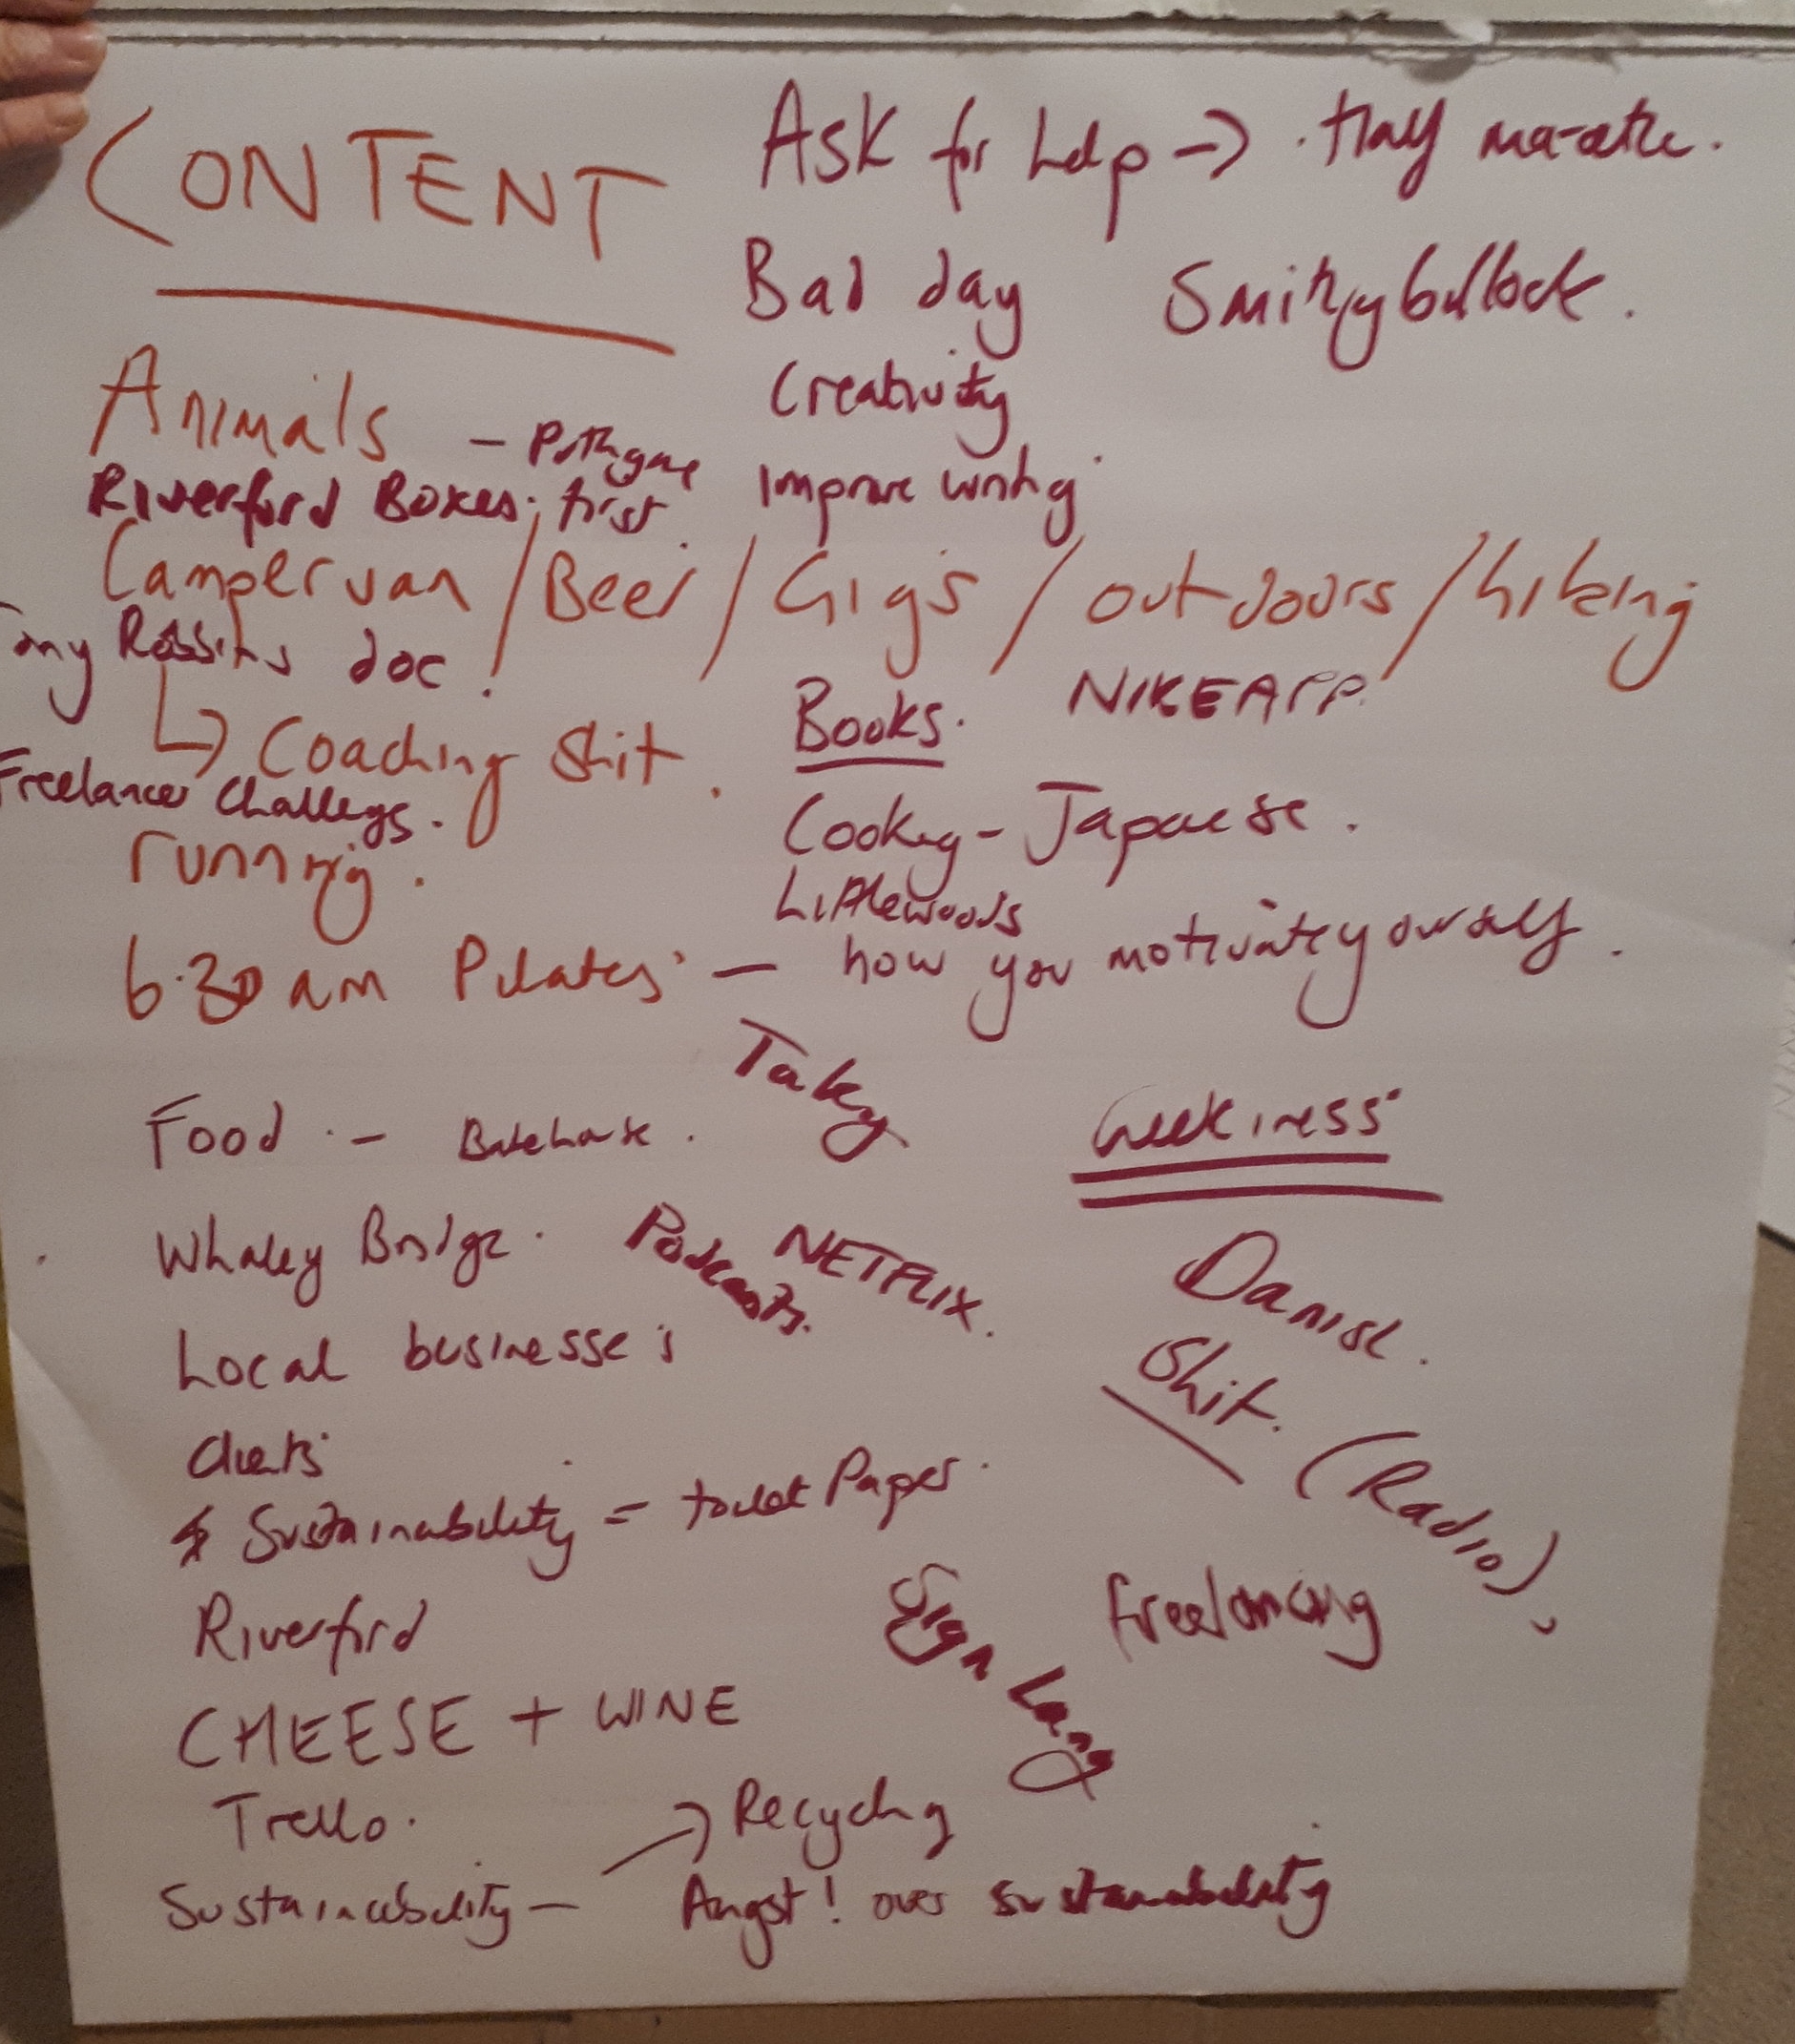 CONTENT
Ask for help → Half
Bad day
Creativity
Improve writing
Animals - Put
first.
Riverford Boxes.
Campervan / Beer / Gigs / outdoors / hiking
Tony Robbins doc.
↳ Coaching shit.
Freelancer Challenges.
running.
Books.
NIKEAPP.
Cooking - Japanese.
Littlewoods
6.30 am Pilates - how you motivate yourself.
Food. -
Geekiness
Whaley Bridge.
Podcasts.
NETFLIX.
Danish.
Shit.
(Radio),
Local businesses
Clients
Sustainability = toilet Paper.
Riverford
Sign Lang
freelancing
CHEESE + WINE
Trello.
Sustainability - → Recycling
Angst! over sustainability